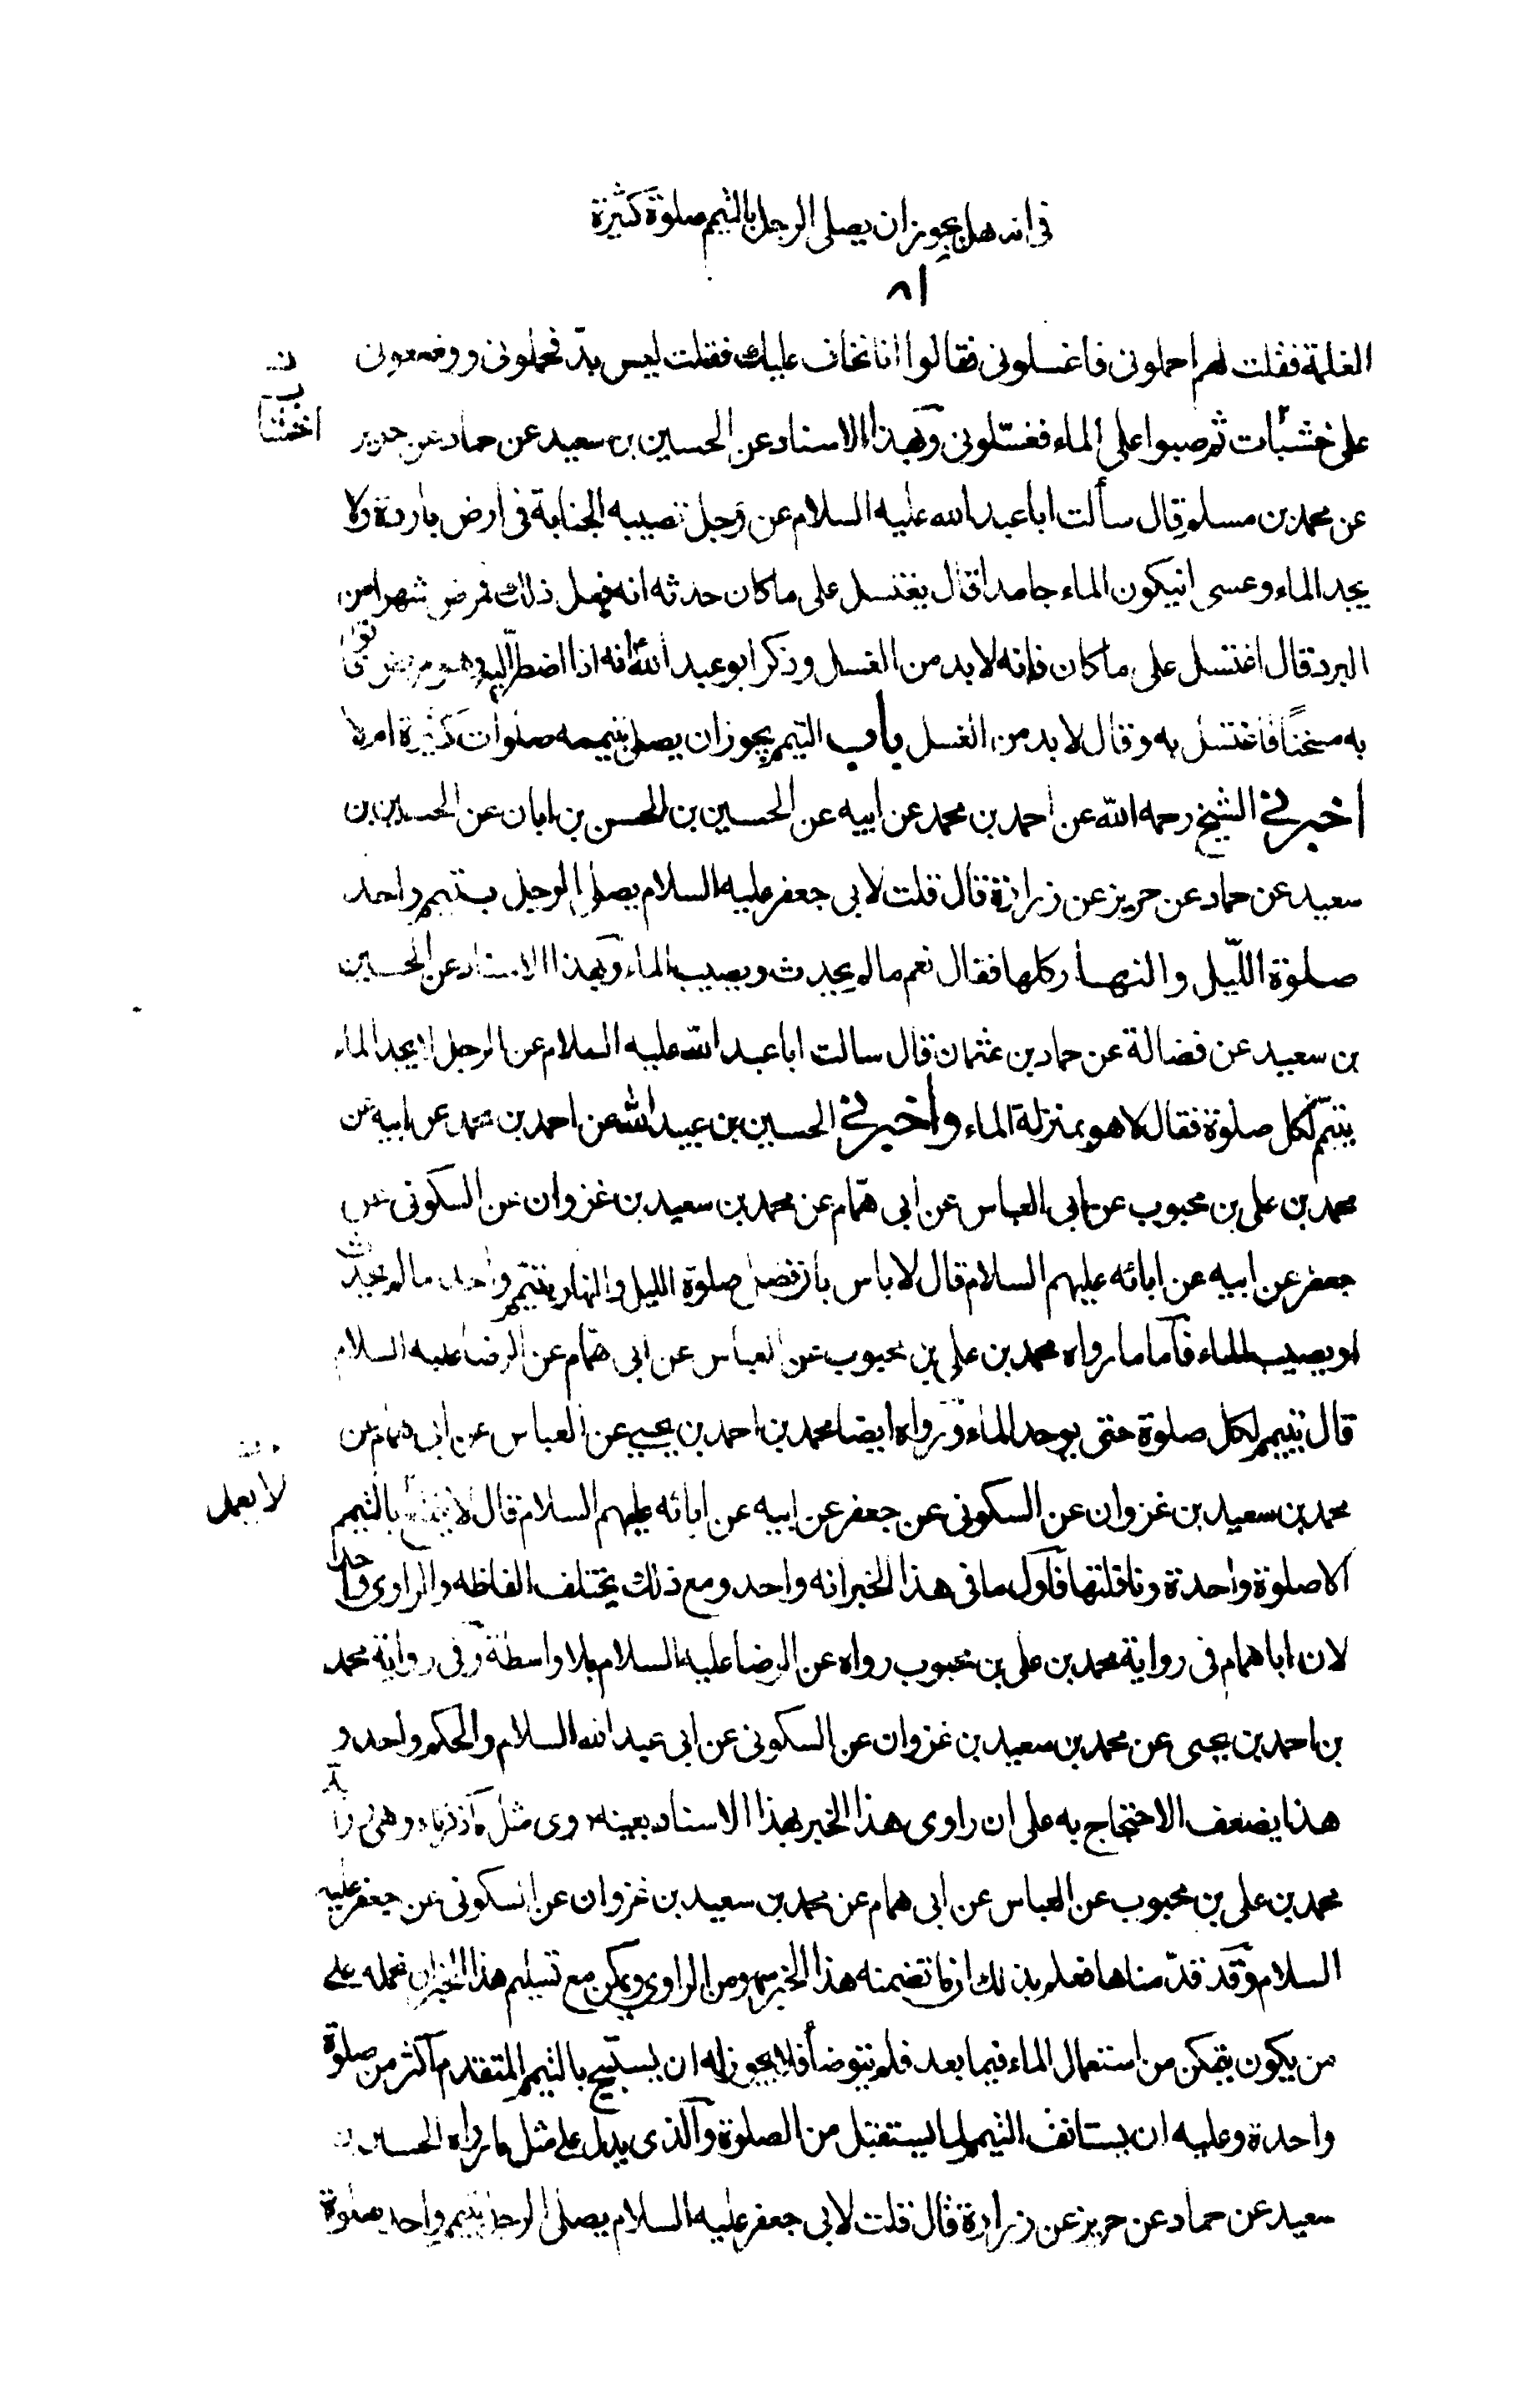 فى انه هل يجوز ان يصلى الرجل بالتيمم صلوة كثيرة
٨١
الغلمة فقلت لهم احملونى فاغسلونى فقالوا انا نخاف عليك فقلت ليس بدّ فحملونى ووضعونى
على خشبات ثم صبوا على الماء فغسّلونى وبهذا الاسناد عن الحسين بن سعيد عن حماد عن حريز
عن محمد بن مسلم قال سألت ابا عبد الله عليه السلام عن رجل تصيبه الجنابة فى ارض باردة ولا
يجد الماء وعسى ان يكون الماء جامدا قال يغتسل على ما كان حدثه انه فعل ذلك فمرض شهرا من
البرد قال اغتسل على ما كان فانه لا بد من الغسل وذكر ابو عبد الله ع انه اذا اضطرّ اليه وهو مريض فاتوا
به مسخنًا فاغتسل به وقال لا بد من الغسل باب التيمم يجوز ان يصلى بتيممه صلوات كثيرة ام لا
اخبرنى الشيخ رحمه الله عن احمد بن محمد عن ابيه عن الحسين بن الحسن بن ابان عن الحسين بن
سعيد عن حماد عن حريز عن زرارة قال قلت لابى جعفر عليه السلام يصلى الرجل بتيمم واحد
صلوة اللّيل والنهار كلها فقال نعم ما لم يحدث او يصيب الماء وبهذا الاسناد عن الحسين
بن سعيد عن فضالة عن حماد بن عثمان قال سالت ابا عبد الله عليه السلام عن الرجل لا يجد الماء
يتيمّم لكل صلوة فقال لا هو بمنزلة الماء واخبرنى الحسين بن عبيد الله عن احمد بن محمد عن ابيه عن
محمد بن على بن محبوب عن ابى العباس عن ابى همّام عن محمد بن سعيد بن غزوان عن السكونى عن
جعفر عن ابيه عن ابائه عليهم السلام قال لا باس بان تصلى صلوة الليل والنهار بتيمّم واحد ما لم تحدث
او يصيب الماء فاما ما رواه محمد بن على بن محبوب عن العباس عن ابى همّام عن الرضا عليه السلام
قال تتيمم لكل صلوة حتى يوجد الماء ورواه ايضا محمد بن احمد بن يحيى عن العباس عن ابى همام عن
محمد بن سعيد بن غزوان عن السكونى عن جعفر عن ابيه عن ابائه عليهم السلام قال لا يتمتع بالتيمم
لا يعمل
الا صلوة واحدة ونافلتها فاول ما فى هذا الخبر انه واحد ومع ذلك يختلف الفاظه والراوى واحد
لان ابا همام فى رواية محمد بن على بن محبوب رواه عن الرضا عليه السلام بلا واسطة وفى رواية محمد
بن احمد بن يحيى عن محمد بن سعيد بن غزوان عن السكونى عن ابى عبد الله السلام والحكم واحد و
هذا يضعف الاحتجاج به على ان راوى هذا الخبر بهذا الاسناد بعينه روى مثل ما ذكرناه وهى
محمد بن على بن محبوب عن العباس عن ابى همام عن محمد بن سعيد بن غزوان عن السكونى عن جعفر عليه
السلام وقد قدّمناها فعلم بذلك ان ما تضمنه هذا الخبر سهو من الراوى ويمكن مع تسليم هذا الخبر ان نحمله على
من يكون يتمكن من استعمال الماء فيما بعد فلم يتوضأ فلا يجوز له ان يستبيح بالتيمم المتقدم اكثر من صلوة
واحدة وعليه ان يستانف التيمم لما يستقبل من الصلوة والذى يدل على مثل ما رواه الحسين بن
سعيد عن حماد عن حريز عن زرارة قال قلت لابى جعفر عليه السلام يصلى الرجل بتيمم واحد صلوة